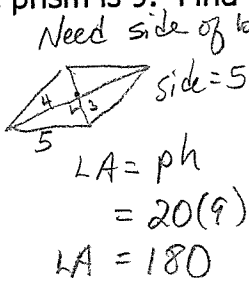 prism is 9. Find
Need side of
side = 5
4
3
5
LA = ph
= 20(9)
LA = 180